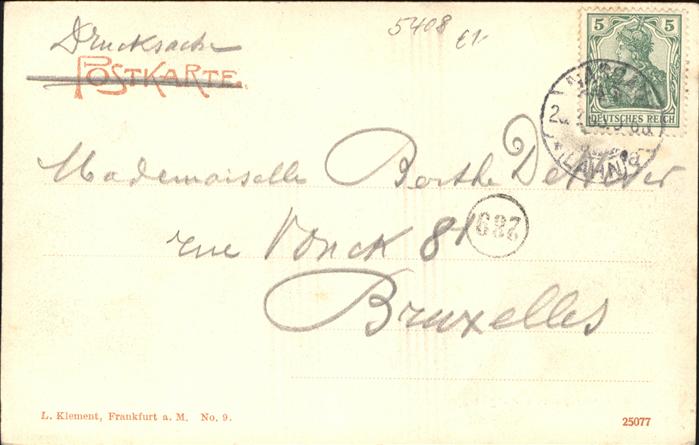 5408 el.
Drucksache
POSTKARTE.
5 5
DEUTSCHES REICH
NASSAU
(LAHN)
Mademoiselle Berthe
rue Vonck 81
289
Bruxelles
L. Klement, Frankfurt a. M. No. 9.
25077